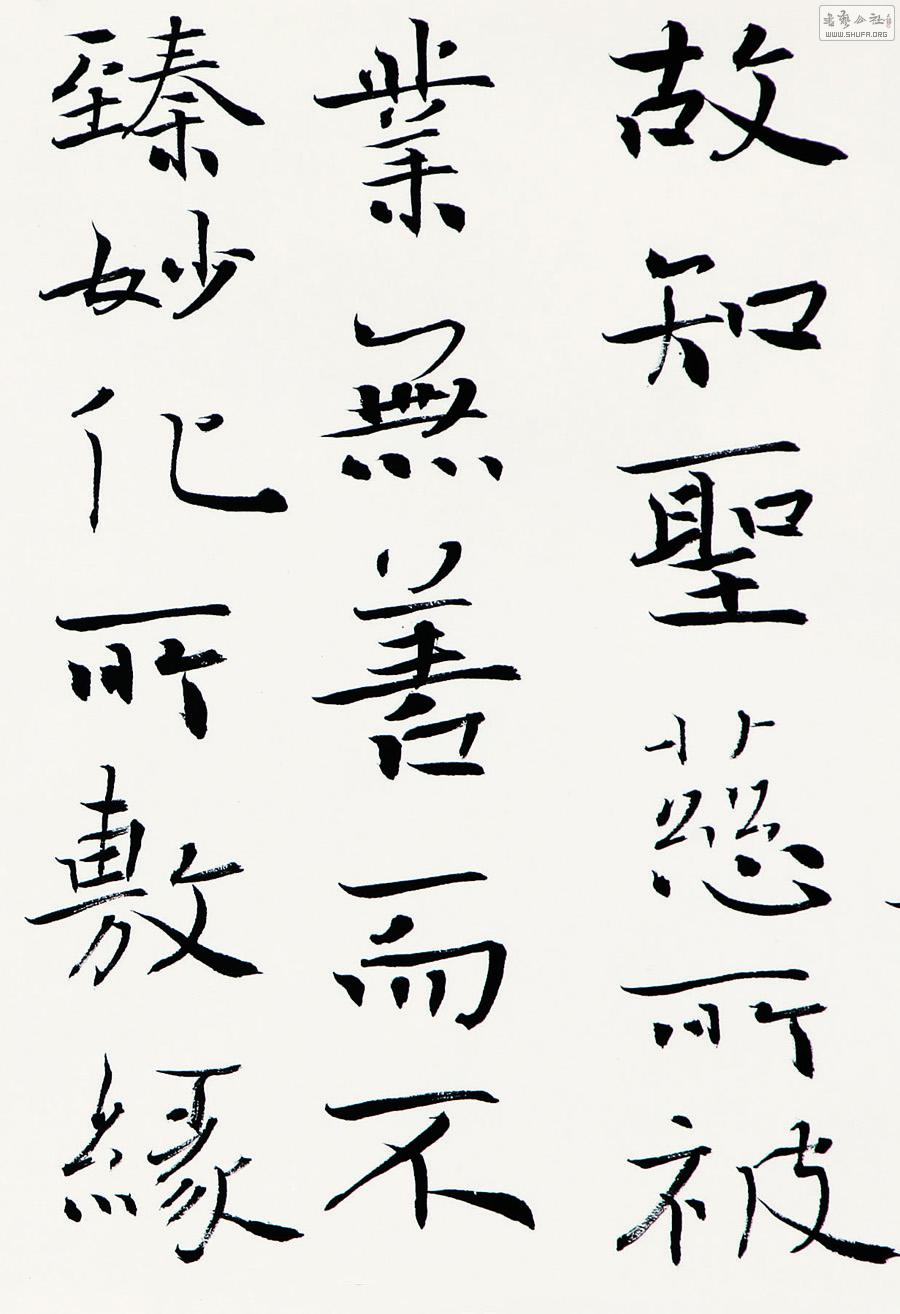 故知聖慈所被
業無善而不
臻妙化所敷緣
書藝公社
WWW.SHUFA.ORG